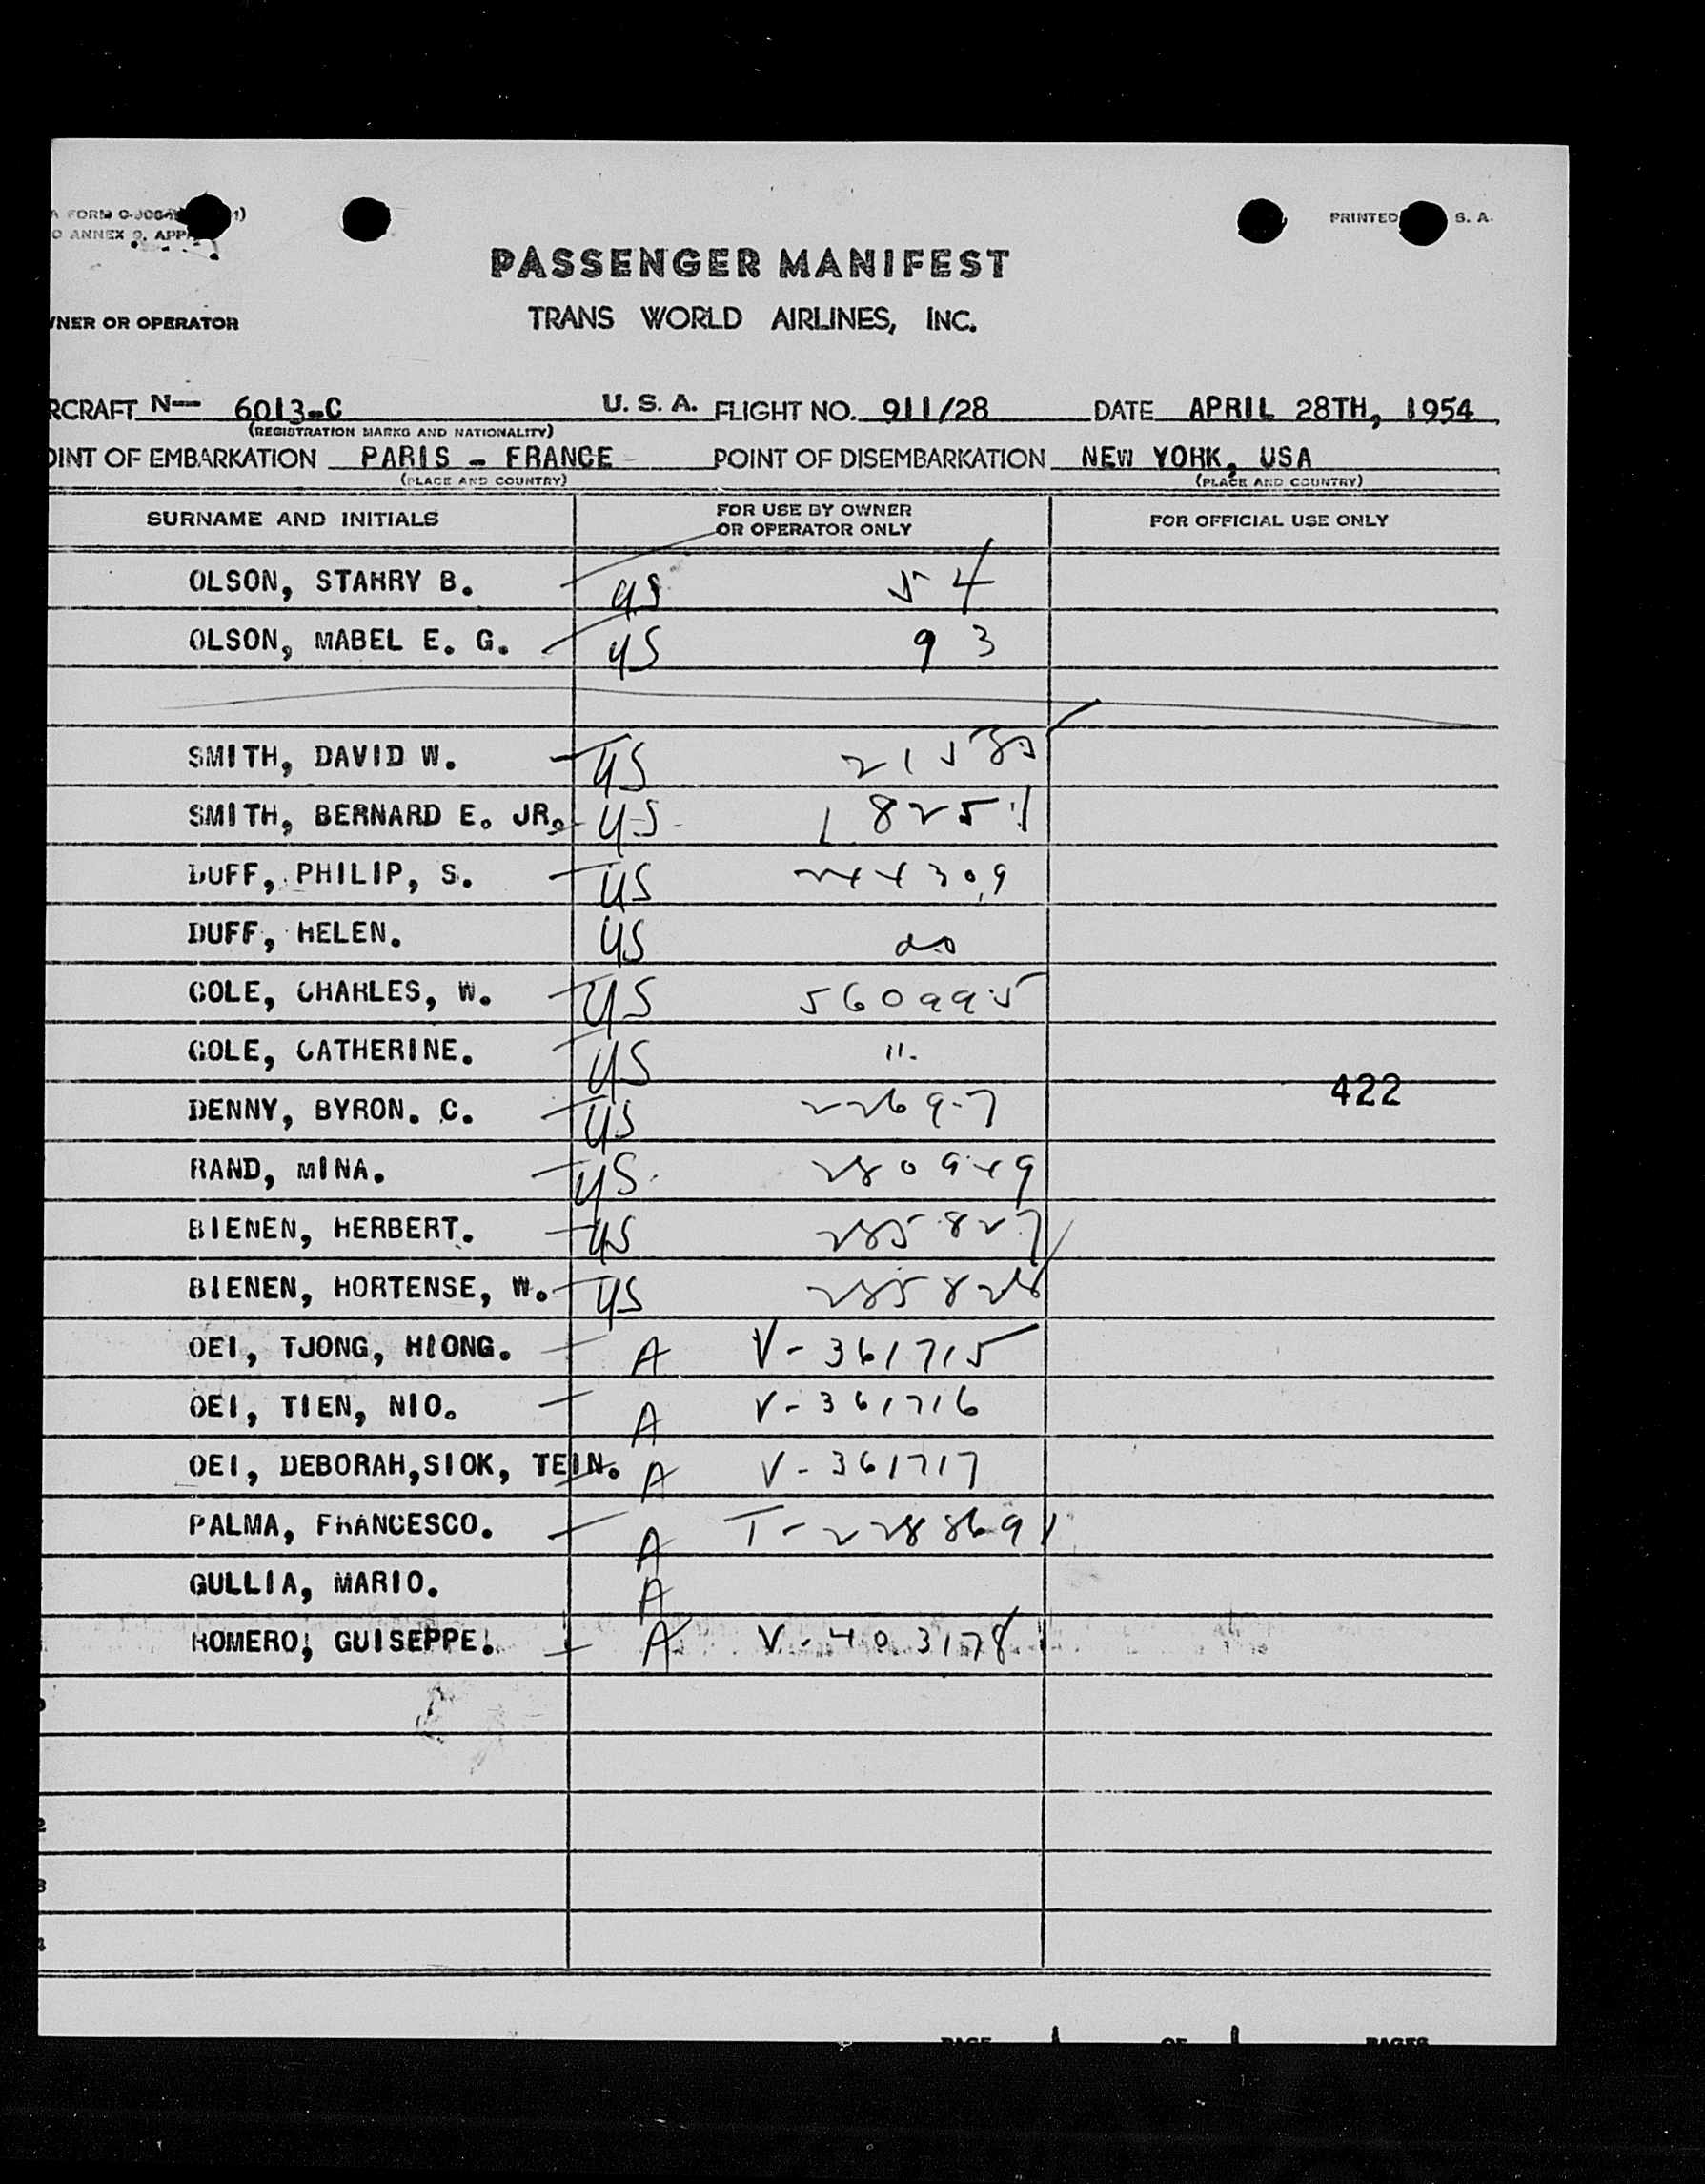 A FORM C-306
O ANNEX 9, APP
PRINTED S. A.
PASSENGER MANIFEST
TRANS WORLD AIRLINES, INC.
NER OR OPERATOR
RCRAFT N— 6013-C U. S. A. FLIGHT NO. 911/28 DATE APRIL 28TH, 1954
(REGISTRATION MARKS AND NATIONALITY)
OINT OF EMBARKATION PARIS - FRANCE POINT OF DISEMBARKATION NEW YORK, USA
(PLACE AND COUNTRY) (PLACE AND COUNTRY)
SURNAME AND INITIALS FOR USE BY OWNER OR OPERATOR ONLY FOR OFFICIAL USE ONLY
OLSON, STARRY B. US 54
OLSON, MABEL E. G. US 93
SMITH, DAVID W. US
SMITH, BERNARD E. JR. US 18251
DUFF, PHILIP, S. US 244309
DUFF, HELEN. US do
COLE, CHARLES, W. US 560995
COLE, CATHERINE. US 11.
422
DENNY, BYRON. C. US 22697
RAND, MINA. US 280949
BIENEN, HERBERT. US 285827
BIENEN, HORTENSE, W. US 285828
OEI, TJONG, HIONG. A V-361715
OEI, TIEN, NIO. A V-361716
OEI, DEBORAH,SIOK, TEIN. A V-361717
PALMA, FRANCESCO. A T-2288691
GULLIA, MARIO. A
ROMERO, GUISEPPE. A V-403178
PAGE 1 OF 1 PAGES